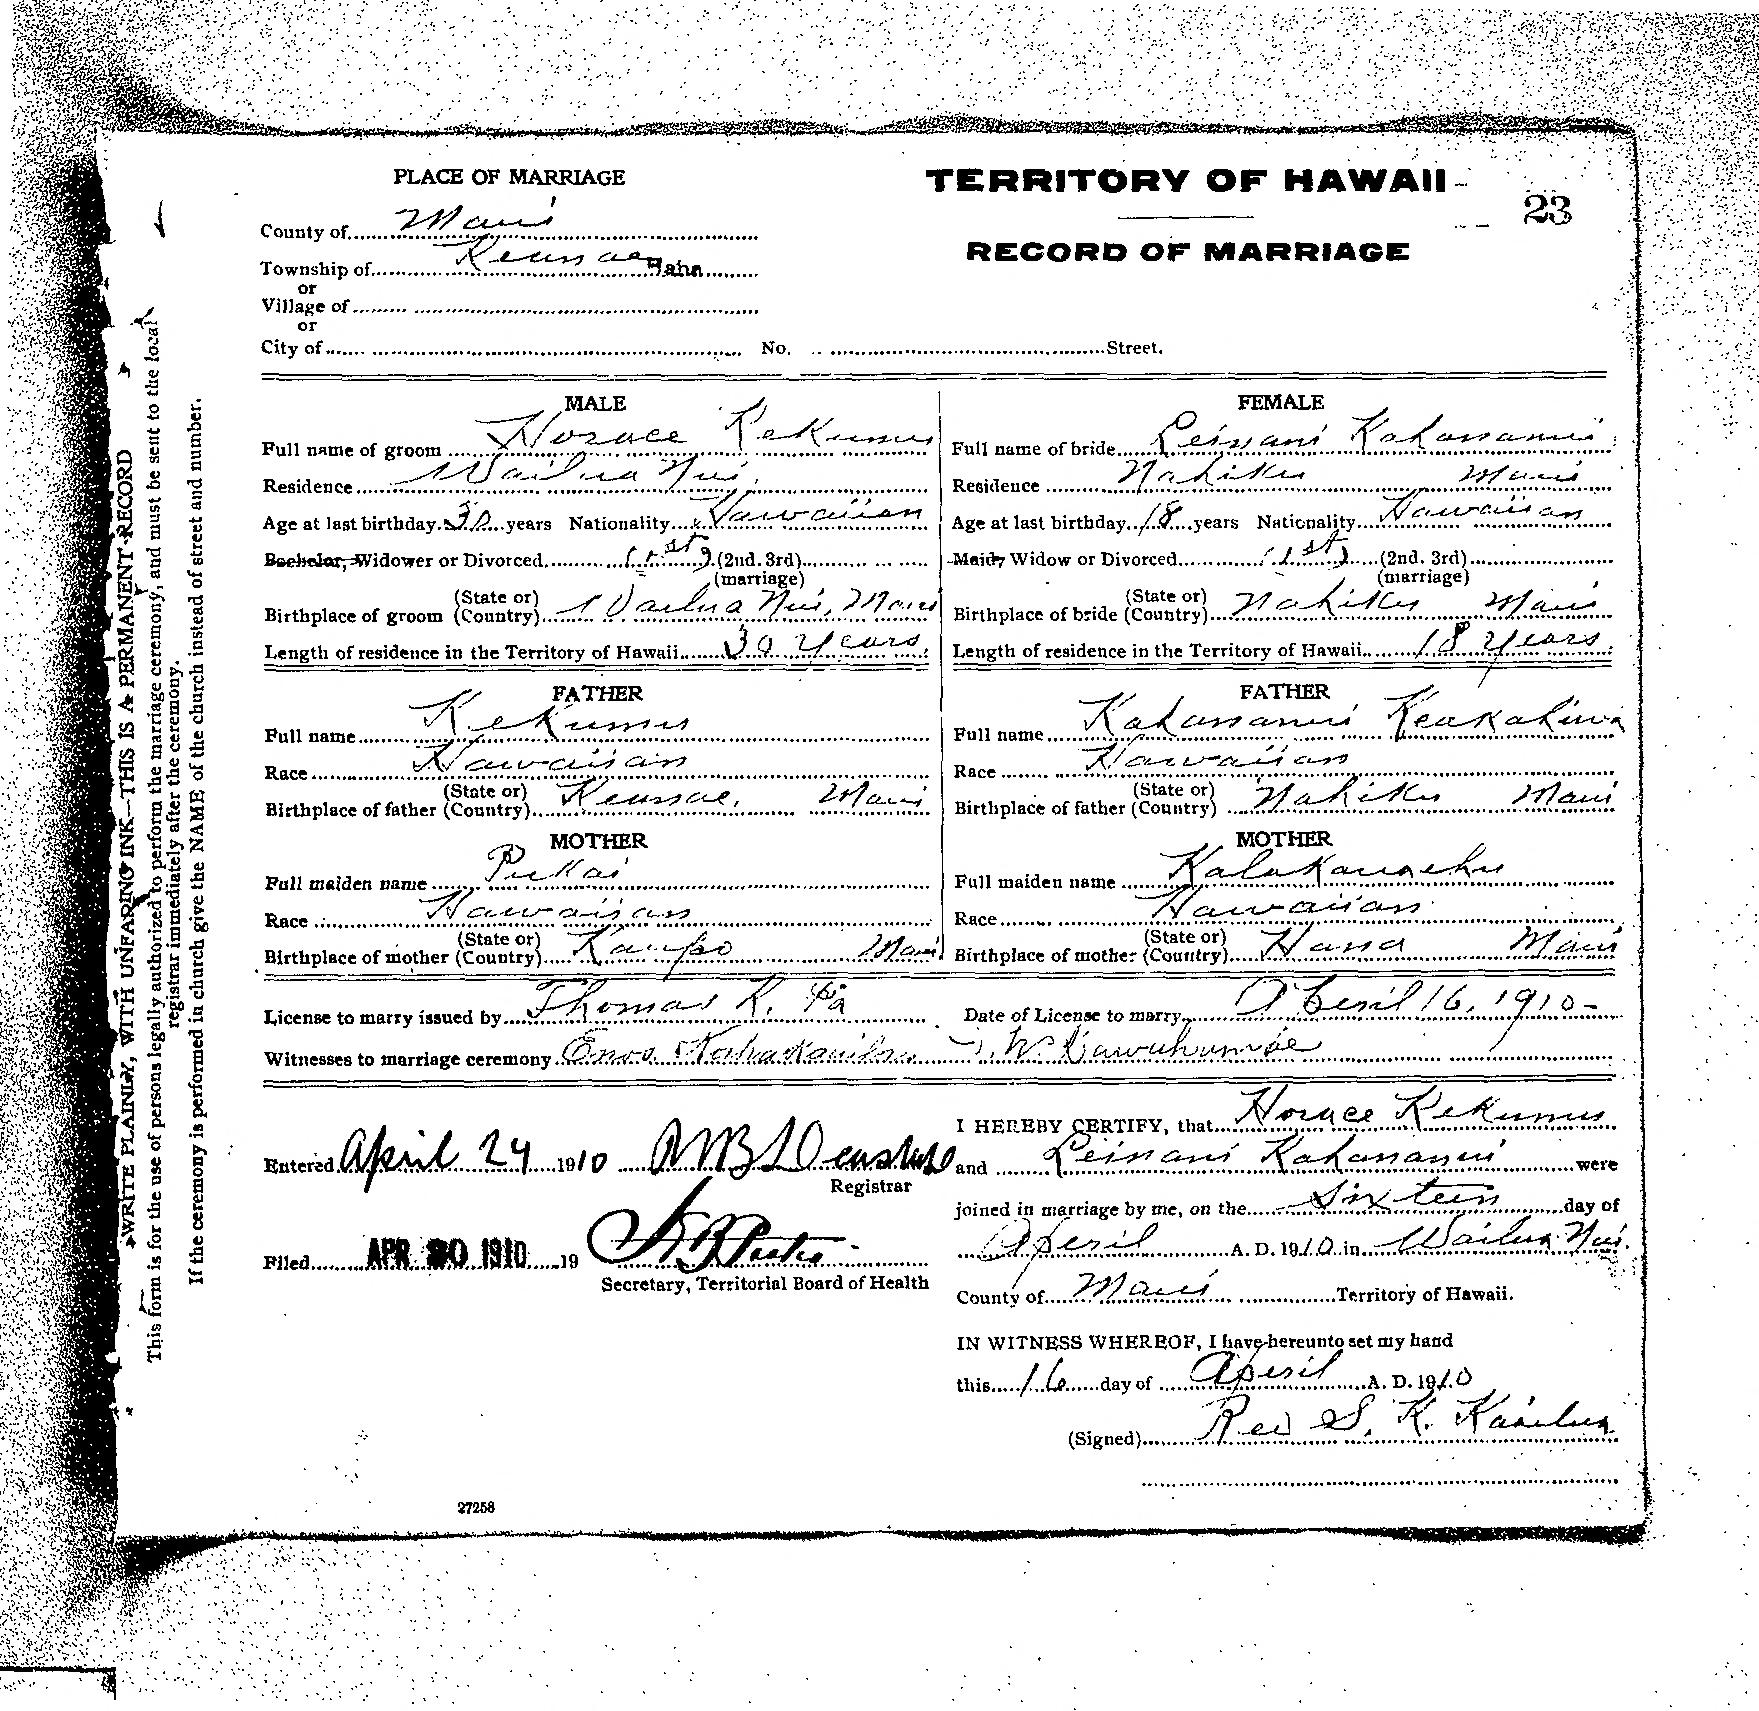 PLACE OF MARRIAGE
TERRITORY OF HAWAII
23
RECORD OF MARRIAGE
County of Maui
Township of Keanae Hana
or
Village of
or
City of No. Street.
MALE
Full name of groom Horace Kekumu
Residence Wailua Nui
Age at last birthday 30 years Nationality Hawaiian
Bachelor, Widower or Divorced (1st) (2nd. 3rd)
(marriage)
Birthplace of groom (State or Country) Wailua Nui, Maui
Length of residence in the Territory of Hawaii 30 Years
FEMALE
Full name of bride Leinani Kahananui
Residence Nahiku Maui
Age at last birthday 18 years Nationality Hawaiian
Maid, Widow or Divorced (1st) (2nd. 3rd)
(marriage)
Birthplace of bride (State or Country) Nahiku Maui
Length of residence in the Territory of Hawaii 18 Years
FATHER
Full name Kekumu
Race Hawaiian
Birthplace of father (State or Country) Keanae, Maui
MOTHER
Full maiden name Pukai
Race Hawaiian
Birthplace of mother (State or Country) Kaupo Maui
FATHER
Full name Kahananui Keakahiwa
Race Hawaiian
Birthplace of father (State or Country) Nahiku Maui
MOTHER
Full maiden name
Race Hawaiian
Birthplace of mother (State or Country) Hana Maui
License to marry issued by Thomas K. Pa Date of License to marry Aperil 16, 1910
Witnesses to marriage ceremony Enos
Entered April 24 1910
Registrar
Filed APR 30 1910 19
Secretary, Territorial Board of Health
I HEREBY CERTIFY, that Horace Kekumu
and Leinani Kahananui were
joined in marriage by me, on the Sixteen day of
Aperil A. D. 1910 in Wailua Nui.
County of Maui Territory of Hawaii.
IN WITNESS WHEREOF, I have hereunto set my hand
this 16 day of Aperil A. D. 1910
(Signed) Rev S. K. Kaailua
27258
WRITE PLAINLY, WITH UNFADING INK—THIS IS A PERMANENT RECORD
This form is for the use of persons legally authorized to perform the marriage ceremony, and must be sent to the local
registrar immediately after the ceremony.
If the ceremony is performed in church give the NAME of the church instead of street and number.